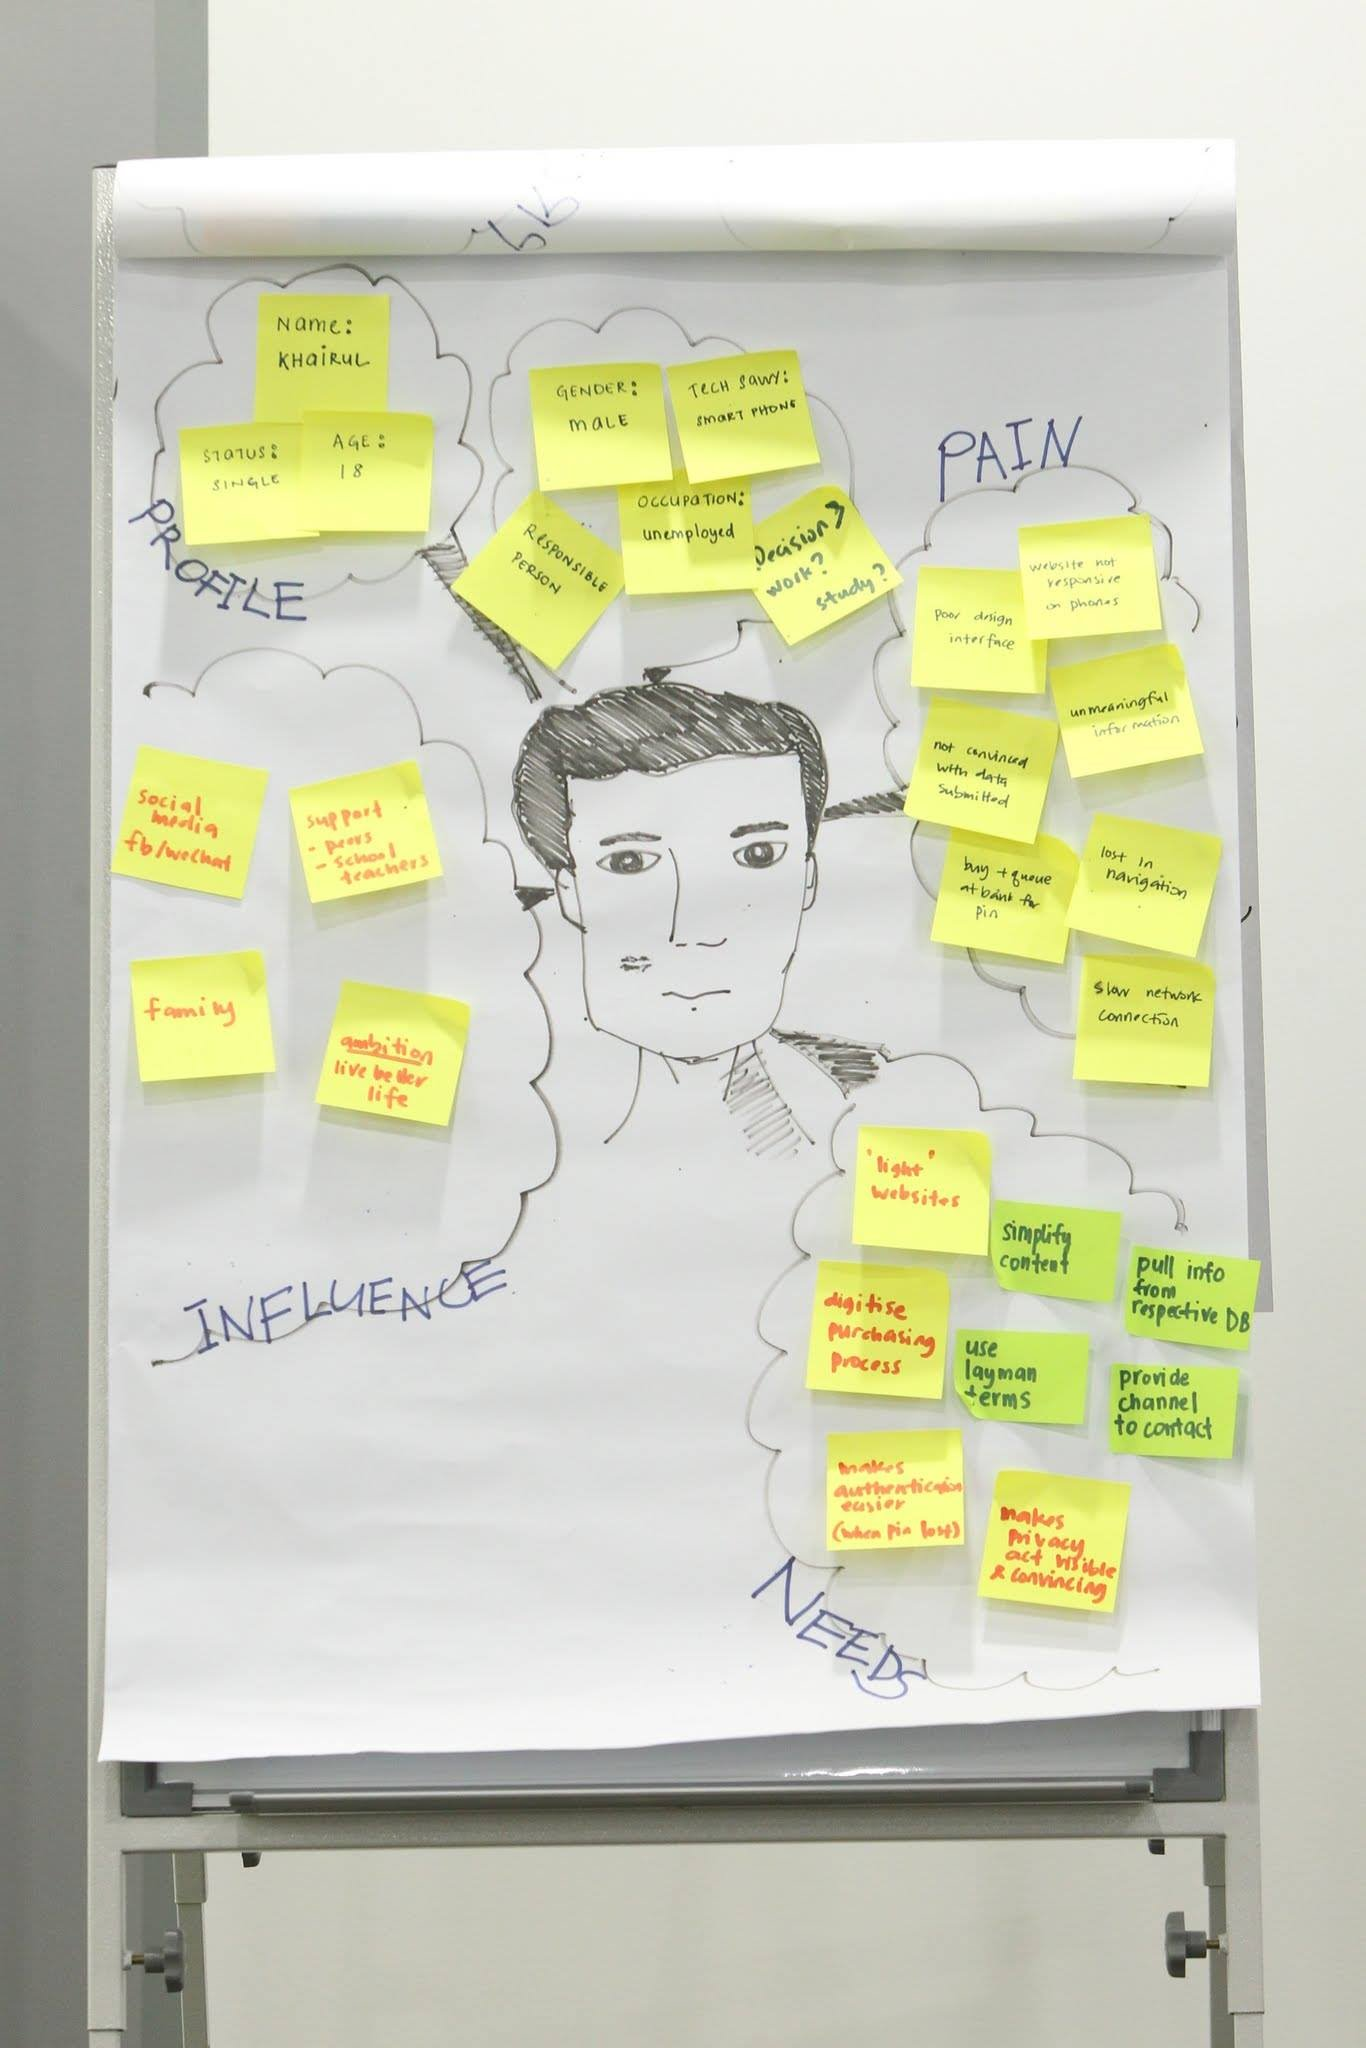 Name:
KHAIRUL
STATUS:
SINGLE
AGE:
18
PROFILE
GENDER:
MALE
TECH SAVVY:
SMART PHONE
RESPONSIBLE
PERSON
OCCUPATION:
unemployed
Decision
work?
study?
PAIN
website not
responsive
on phones
poor design
interface
unmeaningful
information
not convinced
with data
submitted
buy + queue
at bank for
pin
lost in
navigation
slow network
connection
social
media
fb/wechat
support
- peers
- school
teachers
family
ambition
live better
life
INFLUENCE
"light"
websites
simplify
content
pull info
from
respective DB
digitise
purchasing
process
use
layman
terms
provide
channel
to contact
makes
authentication
easier
(when pin lost)
makes
privacy
act visible
& convincing
NEEDS